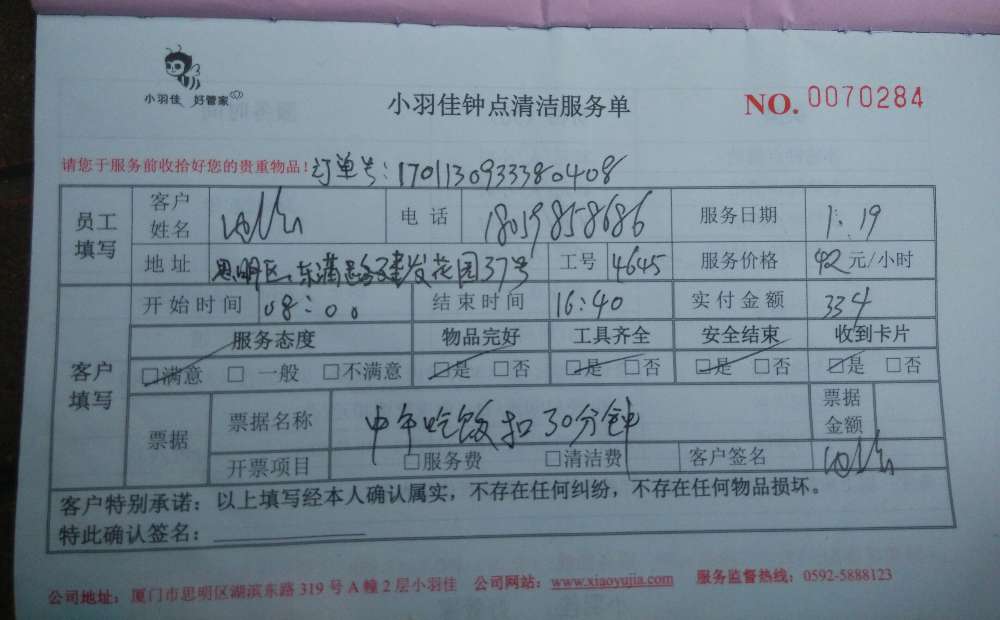 小羽佳 好管家
小羽佳钟点清洁服务单 NO. 0070284
请您于服务前收拾好您的贵重物品! 订单号:17011309333380408
员工填写 客户姓名 电话 18019858686 服务日期 1.19
地址 思明区 东浦路建发花园37号 工号 4645 服务价格 42 元/小时
客户填写 开始时间 08:00 结束时间 16:40 实付金额 334
服务态度 物品完好 工具齐全 安全结束 收到卡片
☑满意 □ 一般 □不满意 ☑是 □否 ☑是 □否 ☑是 □否 ☑是 □否
票据 票据名称 中午吃饭扣30分钟 票据金额
开票项目 □服务费 □清洁费 客户签名
客户特别承诺:以上填写经本人确认属实,不存在任何纠纷,不存在任何物品损坏。
特此确认签名:
公司地址:厦门市思明区湖滨东路 319 号 A 幢 2 层小羽佳 公司网站:www.xiaoyujia.com 服务监督热线:0592-5888123